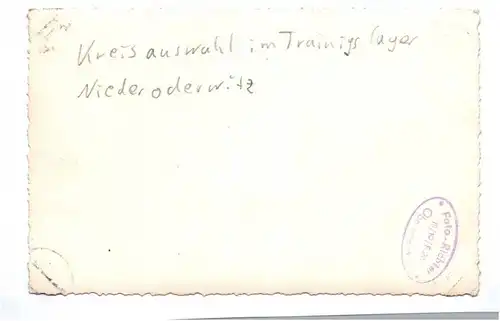 Kreisauswahl im Trainigslager
Niederoderwitz
Foto-Richter